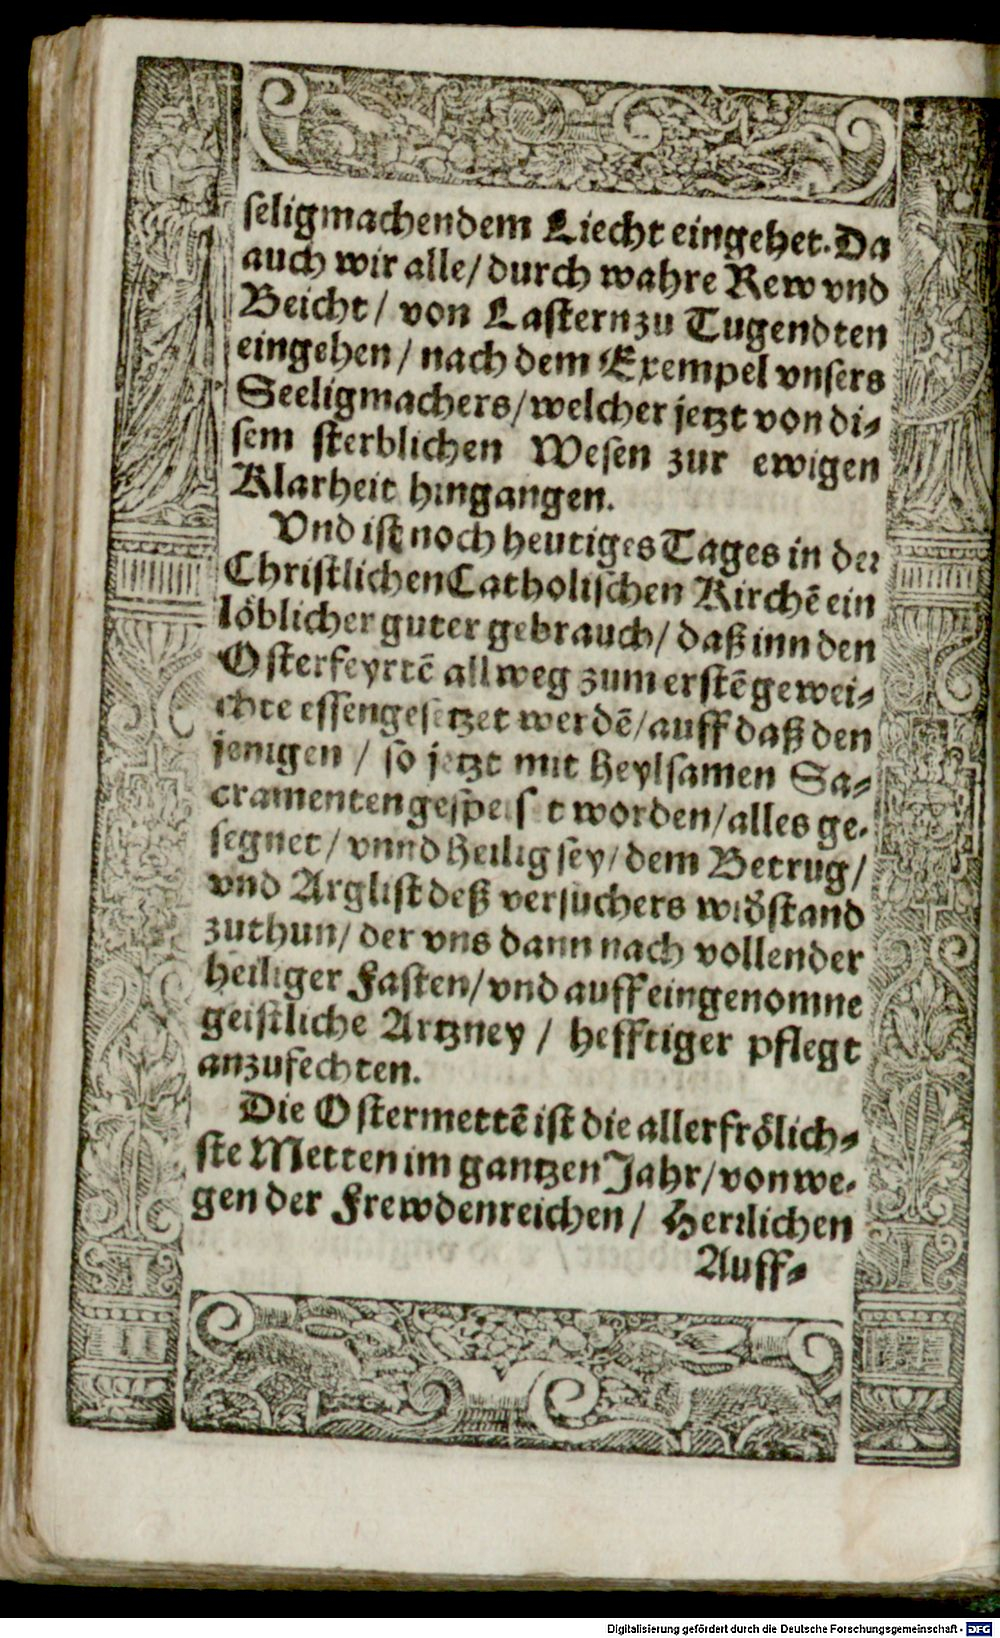 seligmachendem Liecht eingehet. Da
auch wir alle/ durch wahre Rew vnd
Beicht/ von Lastern zu Tugendten
eingehen/ nach dem Exempel vnsers
Seeligmachers/ welcher jetzt von di-
sem sterblichen Wesen zur ewigen
Klarheit hingangen.
Vnd ist noch heutiges Tages in der
Christlichen Catholischen Kirchē ein
löblicher guter gebrauch/ daß inn den
Osterfeyrtē allweg zum erstē gewei-
chte essen gesetzet werdē/ auff daß den
jenigen/ so jetzt mit heylsamen Sa-
cramenten gespeist worden/ alles ge-
segnet/ vnnd heilig sey/ dem Betrug/
vnd Arglist deß versuchers widʼstand
zuthun/ der vns dann nach vollender
heiliger Fasten/ vnd auff eingenomne
geistliche Artzney/ hefftiger pflegt
anzufechten.
Die Ostermettē ist die allerfrölich-
ste Metten im gantzen Jahr/ von we-
gen der Frewdenreichen/ Herrlichen
Auff-
Digitalisierung gefördert durch die Deutsche Forschungsgemeinschaft - DFG